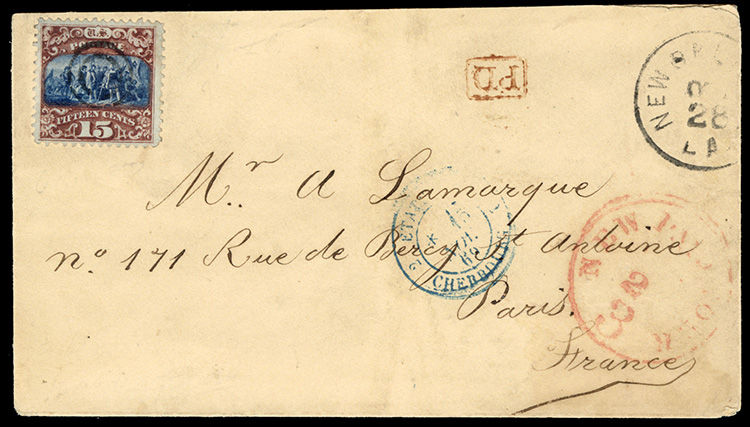 U.S.
POSTAGE
FIFTEEN CENTS
15
PD
NEW OR
28
LA
Mr A Lamarque
no 171 Rue de Bercy St Antoine
Paris.
France
ETAT
15
69
2 CHERBOURG
NEW